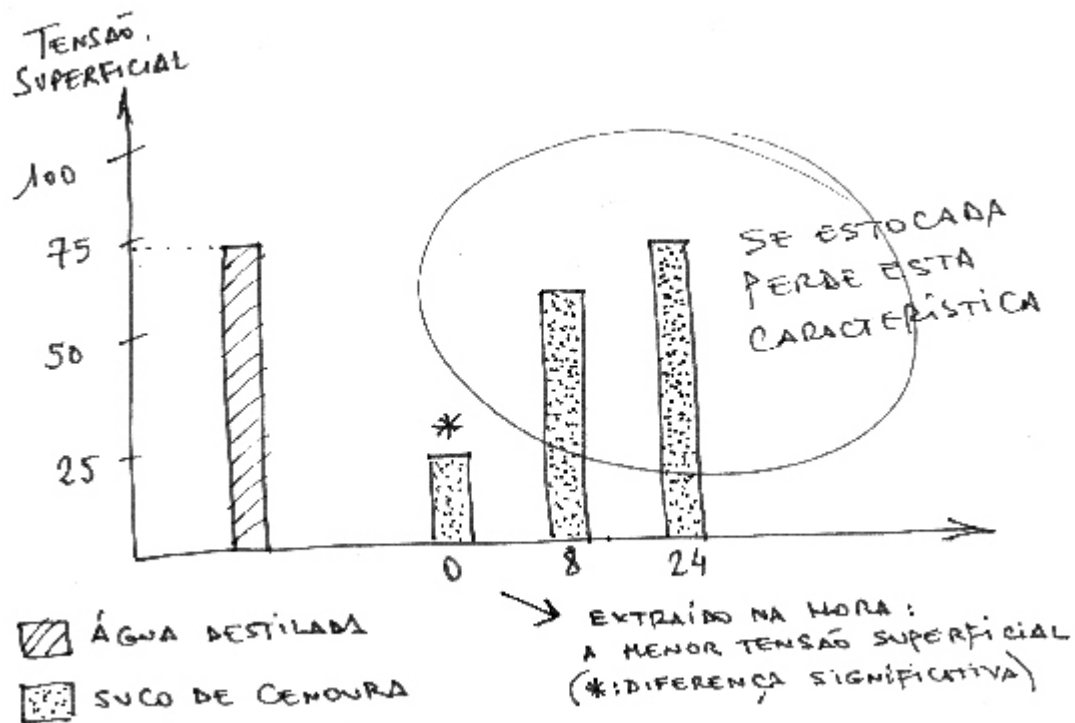 TENSÃO
SUPERFICIAL
100
75
50
25
*
SE ESTOCADA
PERDE ESTA
CARACTERÍSTICA
0 8 24
ÁGUA DESTILADA
SUCO DE CENOURA
EXTRAÍDO NA HORA:
A MENOR TENSÃO SUPERFICIAL
(*:DIFERENÇA SIGNIFICATIVA)